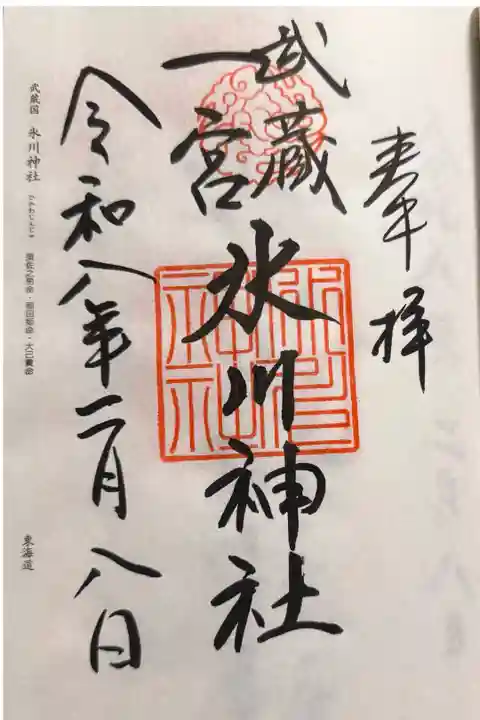 奉拝
武蔵
一宮
氷川神社
氷川
神社
令和八年二月八日
武蔵国 氷川神社 ひかわじんじゃ 須佐之男命・稲田姫命・大己貴命
東海道